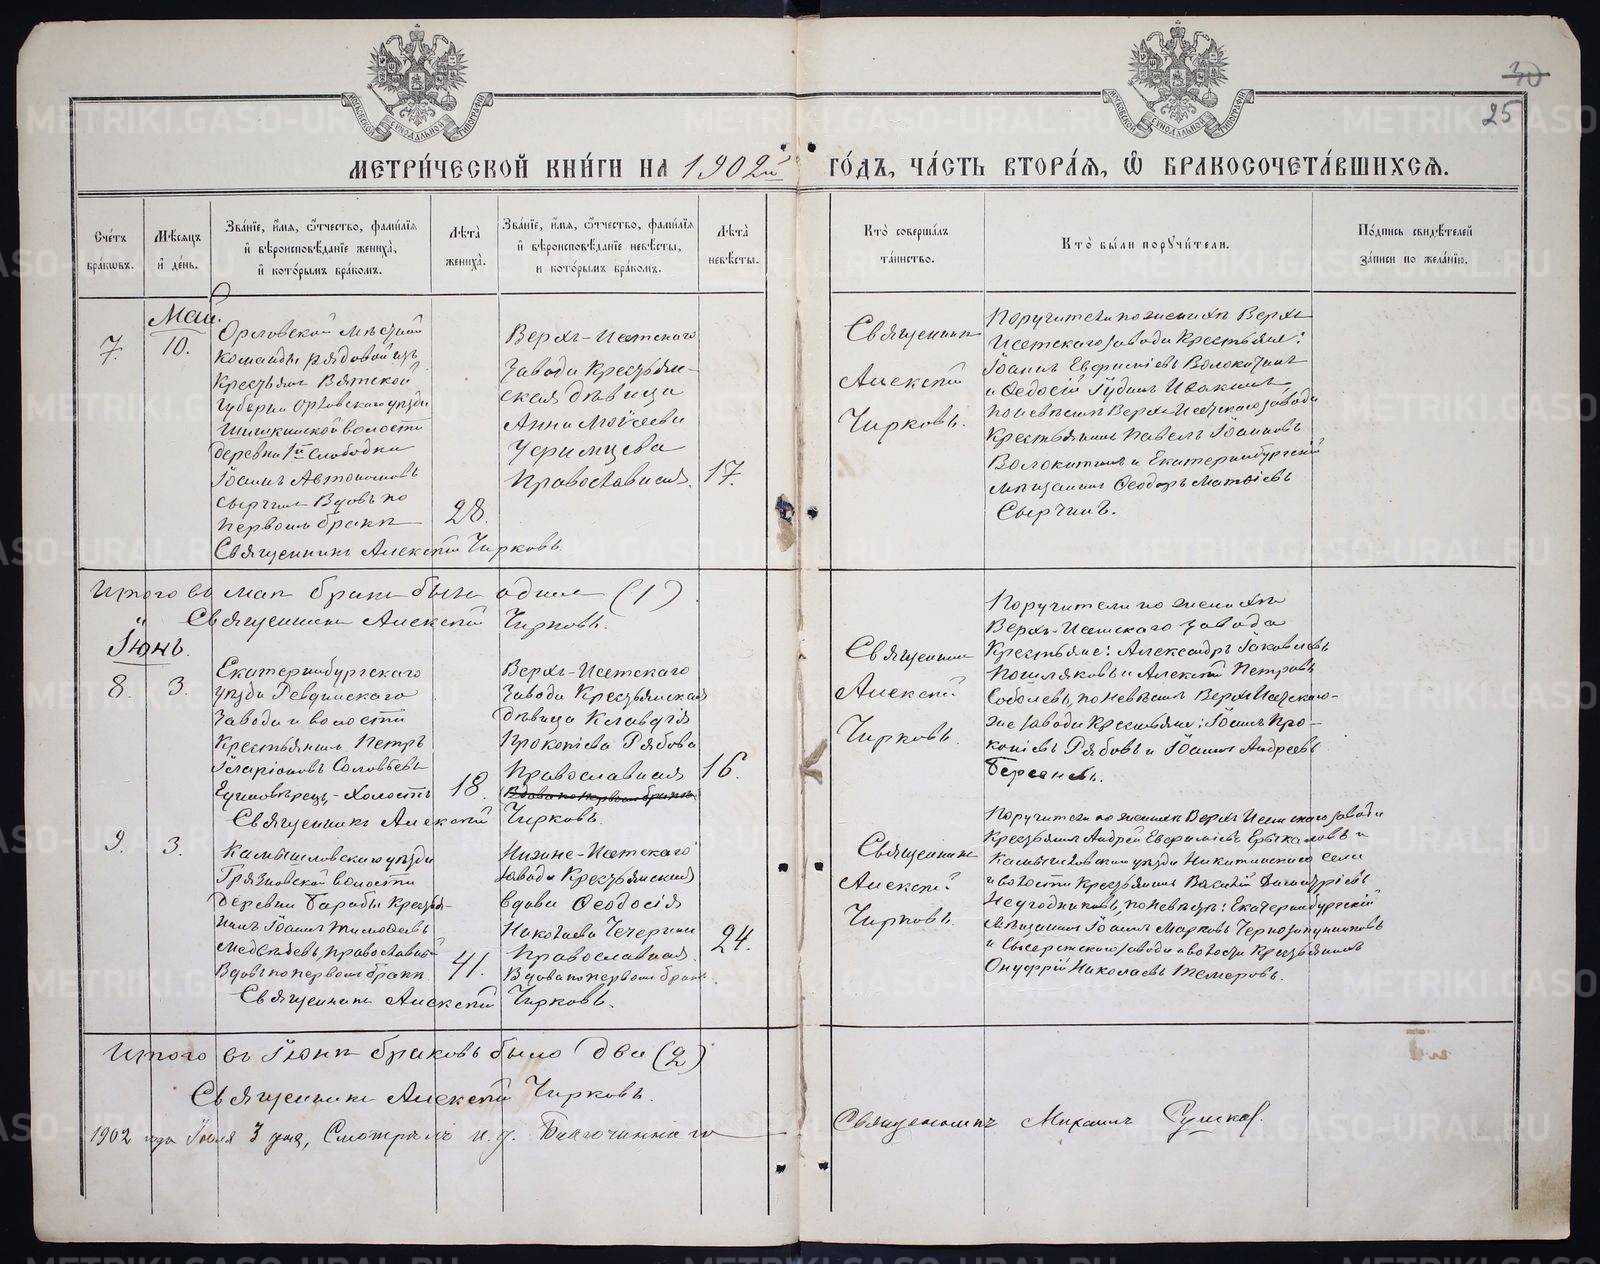 30
25
МЕТРИ́ЧЕСКОЙ КНИ́ГИ НА 1902й ГО́ДЪ, ЧА́СТЬ ВТОРА́Я, Ѡ҆ БРАКОСОЧЕТА́ВШИХСѦ.
Сче́тъ бра́ковъ.
Мѣ́сяцъ и҆ де́нь.
Зва́нїе, и҆́мя, ѻ҆́тчество, фами́лїя и҆ вѣроисповѣ́данїе жениха̀, и҆ кото́рымъ бра́комъ.
Лѣ́та̀ жениха̀.
Зва́нїе, и҆́мя, ѻ҆́тчество, фами́лїя и҆ вѣроисповѣ́данїе невѣ́сты, и кото́рымъ бра́комъ.
Лѣ́та̀ невѣ́сты.
Кто̀ соверша́лъ та́инство.
Кто̀ бы́ли порꙋчи́тели.
По́дпись свидѣ́телей за́писи по жела́нїю.
Май.
7.
10.
Орловской мѣстной
команды рядовой изъ
крестьянъ Вятской
губернiи Орловскаго уѣзда
волости
деревни 1й Слободки
Іоаннъ Автономовъ
Сырчинъ Вдовъ по
первомъ бракѣ
28.
Верхъ-Исетскаго
завода крестьян-
ская дѣвица
Анна Моѵсеева
Черемцева
Православная.
17.
Священникъ Алексѣй Чирковъ.
Священникъ
Алексѣй
Чирковъ.
Поручители по женихѣ Верхъ
Исетскаго завода крестьяне:
Іоаннъ Волокитинъ
и Ѳеодосій Іудинъ Ивакинъ
по невѣстѣ Верхъ-Исетскаго завода
крестьянинъ Павелъ Іоанновъ
Волокитинъ и Екатеринбургскій
мѣщанинъ Ѳеодоръ Матѳіевъ
Сырчинъ.
Итого въ маѣ бракъ былъ одинъ (1)
Священникъ Алексѣй Чирковъ.
Іюнь.
8.
3.
Екатеринбургскаго
уѣзда Ревдинскаго
завода и волости
крестьянинъ Петръ
Иларіоновъ Соловьевъ
Единовѣрецъ, - Холостъ
18.
Верхъ-Исетскаго
завода крестьянская
дѣвица Клавдія
Прокопіева Рябова
Православная
Вдова по первомъ бракѣ
16.
Священникъ Алексѣй Чирковъ.
Священникъ
Алексѣй
Чирковъ.
Поручители по женихѣ
Верхъ-Исетскаго завода
крестьяне: Александръ Іаковлевъ
и Алексѣй Петровъ
Соболевъ, по невѣстѣ Верхъ Исетскаго-
же завода крестьяне: Іоаннъ Про-
копіевъ Рябовъ и Іоаннъ Андреевъ
Берсеневъ.
9.
3.
Камышловскаго уѣзда
Грязновской волости
деревни Барабы крестья-
нинъ Іоаннъ Тимоѳеевъ
Медвѣдевъ, православный
Вдовъ по первомъ бракѣ
41.
Нижне-Исетскаго
завода крестьянская
вдова Ѳеодосія
Николаева Чечерина
Православная.
Вдова по первомъ бракѣ.
24.
Священникъ Алексѣй Чирковъ.
Священникъ
Алексѣй
Чирковъ.
Поручители по женихѣ Верхъ Исетскаго завода
крестьянинъ Андрей и
Камышловскаго уѣзда Никитинскаго села
и волости крестьянинъ Василій Димитріевъ
Неугодниковъ, по невѣстѣ: Екатеринбургскій
мѣщанинъ Іоаннъ Марковъ
и Сысертскаго завода и волости крестьянинъ
Онуфрій Николаевъ Темеровъ.
Итого въ Іюнѣ браковъ было два (2)
Священникъ Алексѣй Чирковъ.
1902 года Іюля 3 дня, Смотрѣлъ и. д. Благочиннаго Священникъ Михаилъ